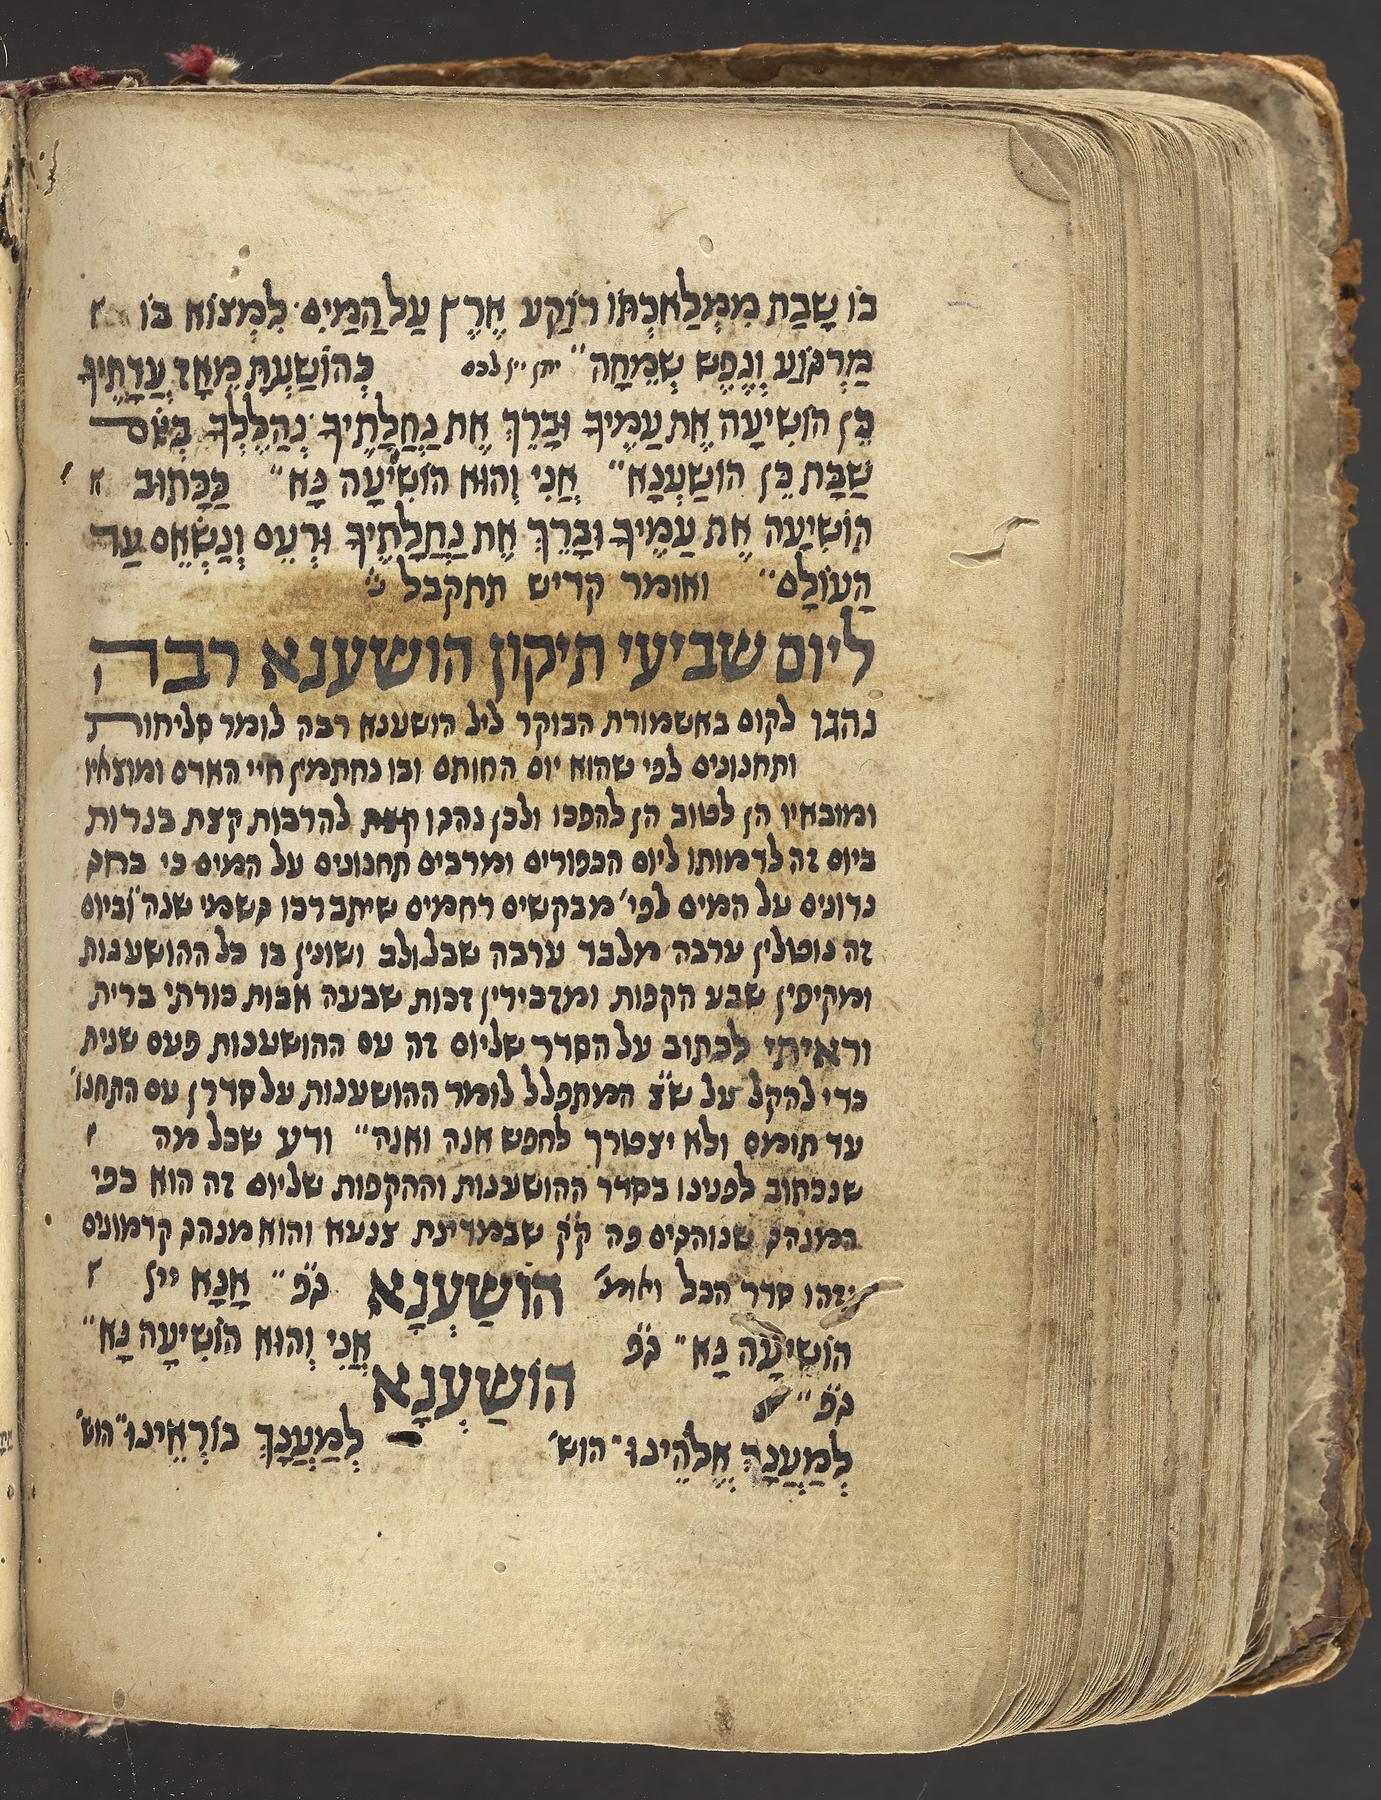 בּוֹ שָׁבַת מִמְּלַאכְתּוֹ רוֹקַע אֶרֶץ עַל הַמַּיִם. לִמְצוֹא בּוֹ
מַרְגּוֹעַ וְנֶפֶשׁ שְׂמֵחָה״ כְּהוֹשַׁעְתָּ מֵאָז עֲדָתֶיךָ
כֵּן הוֹשִׁיעָה אֶת עַמֶּיךָ וּבָרֵךְ אֶת נַחֲלָתֶיךָ נְהַלֶּלְךָ בְּיוֹם
שַׁבָּת כֵּן הוֹשַׁעְנָא״ אֲנִי וְהוּא הוֹשִׁיעָה נָּא״ כַּכָּתוּב
הוֹשִׁיעָה אֶת עַמֶּיךָ וּבָרֵךְ אֶת נַחֲלָתֶיךָ וּרְעֵם וְנַשְּׂאֵם עַד
הָעוֹלָם״ ואומר קדיש תתקבל
ליום שביעי תיקון הושענא רבה
נהגו לקום באשמורת הבוקר ליל הושענא רבה לומר סליחות
ותחנונים לפי שהוא יום החותם ובו נחתמין חיי האדם ומוצאיו
ומובאיו הן לטוב הן להפכו ולכן נהגו להרבות קצת בנרות
ביום זה לדמותו ליום הכפורים ומרבים תחנונים על המים כי בחג
נדונים על המים לפי׳ מבקשים רחמים שיתברכו גשמי שנה״ וביום
זה נוטלין ערבה מלבד ערבה שבלולב ושונין בו כל ההושענות
ומקיפין שבע הקפות ומזכירין זכות שבעה אבות כורתי ברית
וראיתי לכתוב על הסדר של יום זה עם ההושענות פעם שנית
כדי להקל על ש״צ המתפלל לומר ההושענות על סדרן עם התחנו׳
עד תומם ולא יצטרך לחפש אנה ואנה״ ודע שכל מה
שנכתוב לפנינו בסדר ההושענות וההקפות של יום זה הוא כפי
המנהג שנוהגים פה ק״ק שבמדינת צנעא והוא מנהג קדמונים
וזהו סדר הכל ואומ׳ הוֹשַׁעְנָא ג״פ״ אָנָּא ייי
הוֹשִׁיעָה נָּא״ ג״פ אֲנִי וְהוּא הוֹשִׁיעָה נָּא״
ג״פ״ הוֹשַׁעְנָא
לְמַעֲנָךְ אֱלֹהֵינוּ״ הוש׳ לְמַעֲנָךְ בּוֹרְאֵינוּ״ הוש׳